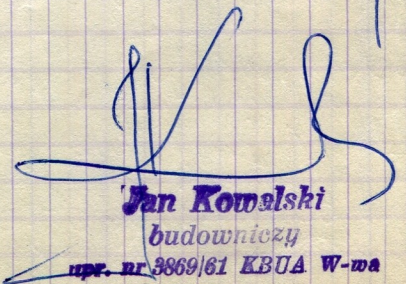 Jan Kowalski
budowniczy
upr. nr 3869/61 KBUA W-wa